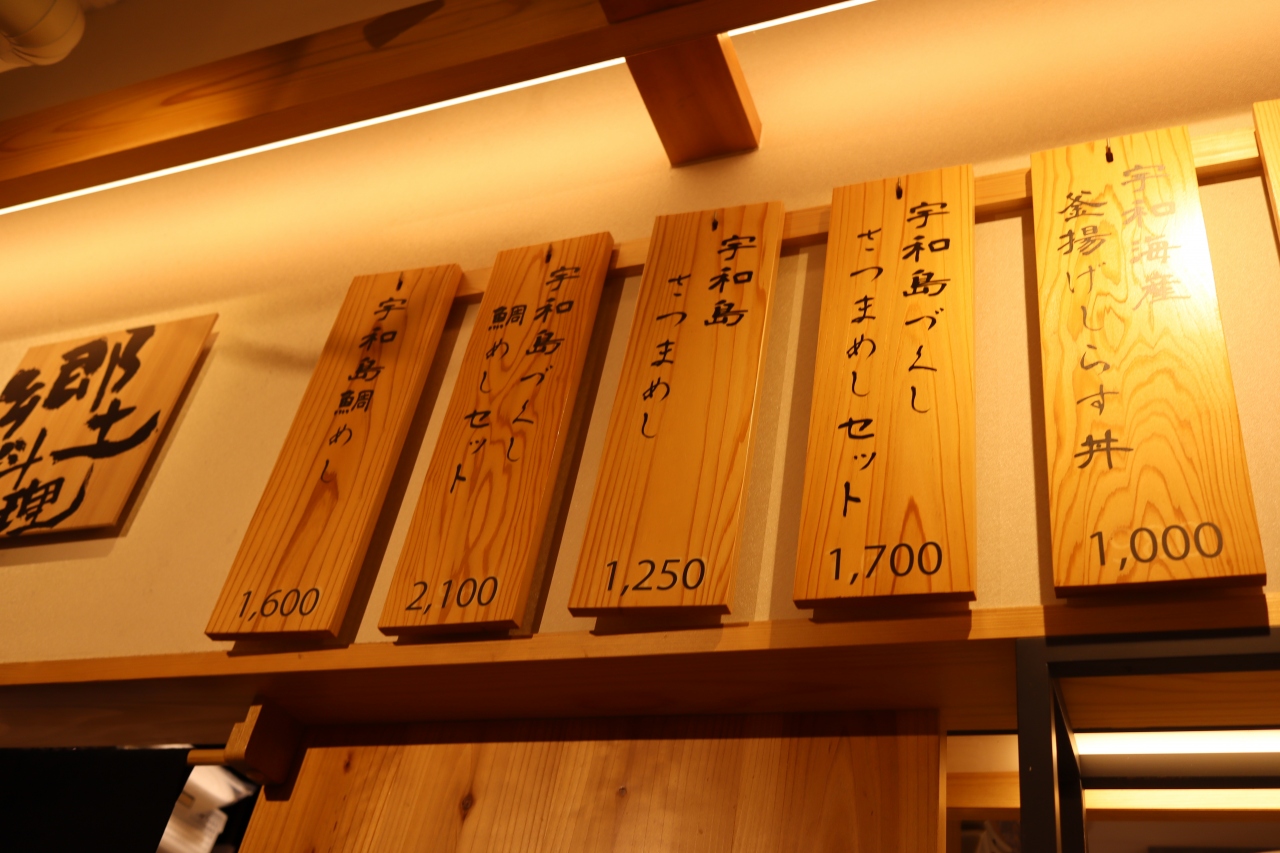 郷土
料理
宇和島鯛めし
1,600
宇和島づくし
鯛めしセット
2,100
宇和島
さつまめし
1,250
宇和島づくし
さつまめしセット
1,700
宇和海産
釜揚げしらす丼
1,000